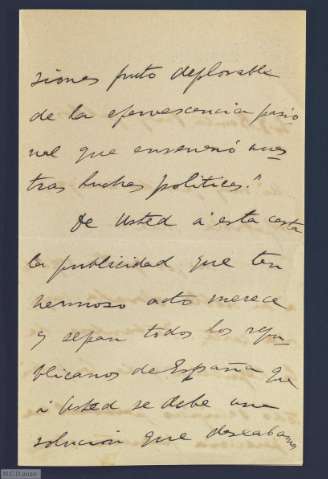 siones fruto deplorable
de la efervescencia pasio
nal que envenenó nues
tras luchas políticas."
De Usted á esta carta
la publicidad que tan
hermoso acto merece
y sepan todos los repu
blicanos de España que
á Usted se debe una
solución que deseabamos